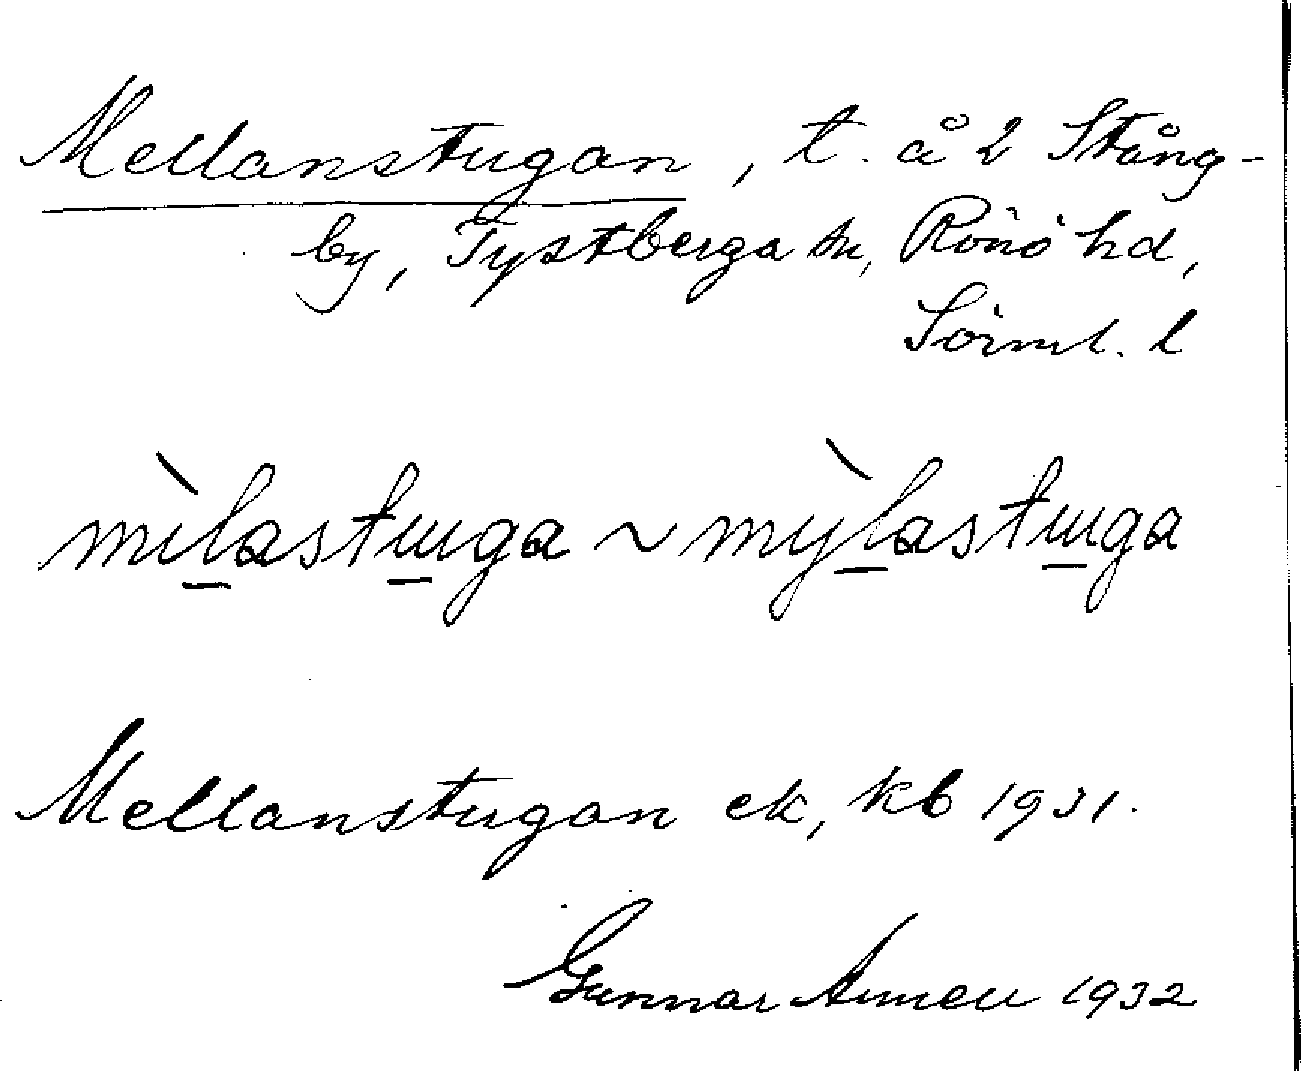 Mellanstugan, t. å 2 Stång-
by, Tystberga sn, Rönö hd,
Sörml. l
mìlastuga ~ mỳlastuga
Mellanstugan ek, kb 1931.
Gunnar 1932